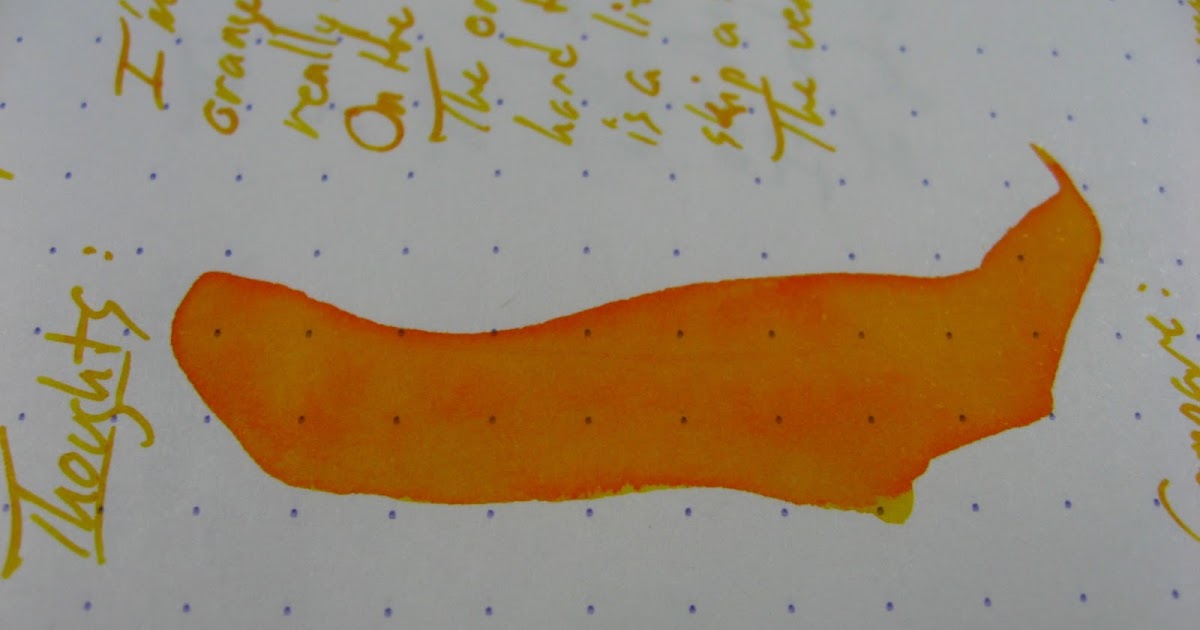 Thoughts:
I'm
orange
really
On the
The or
hard t
is a li
skip a
The ver